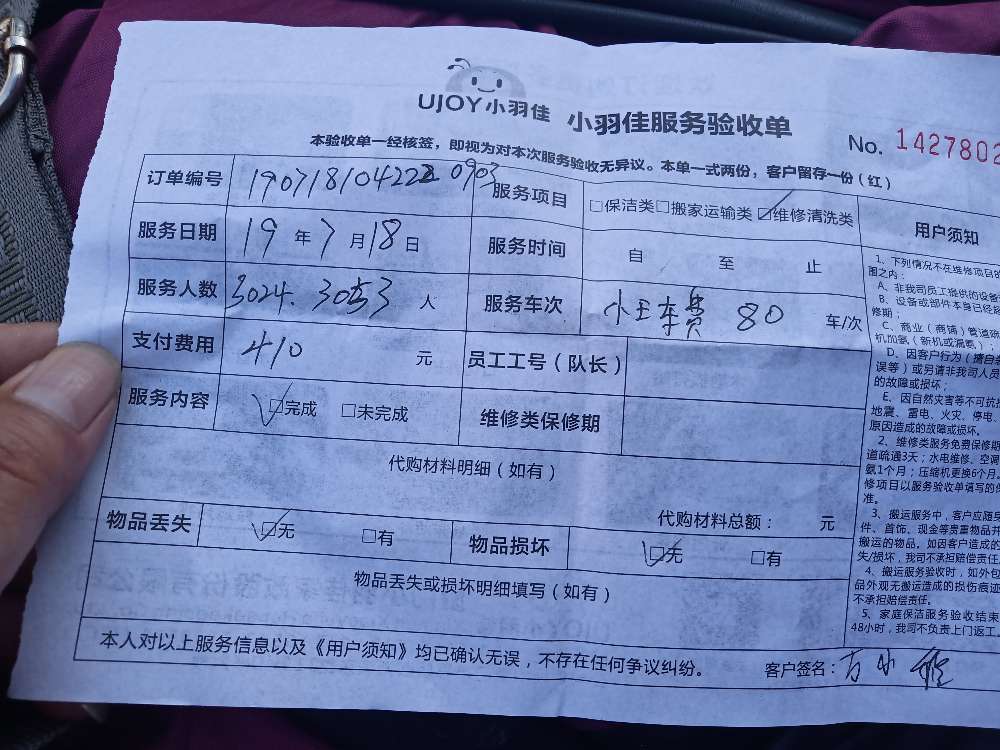 UJOY小羽佳 小羽佳服务验收单
No. 1427802
本验收单一经核签，即视为对本次服务验收无异议。本单一式两份，客户留存一份（红）
订单编号 服务项目 □保洁类□搬家运输类☑维修清洗类
服务日期 19年7月18日 服务时间 自 至 止
服务人数 3024. 3053 人 服务车次 小王车费 80 车/次
支付费用 410 元 员工工号（队长）
服务内容 ☑完成 □未完成 维修类保修期
代购材料明细（如有）
代购材料总额： 元
物品丢失 ☑无 □有 物品损坏 ☑无 □有
物品丢失或损坏明细填写（如有）
本人对以上服务信息以及《用户须知》均已确认无误，不存在任何争议纠纷。 客户签名：
用户须知
1、下列情况不在维修项目的
围之内：
A、非我司员工提供的设备
B、设备或部件本身已经超
修期；
C、商业（商铺）管道疏
机加氨（新机或漏氨）；
D、因客户行为（请自
误等）或另请非我司人员
的故障或损坏；
E、因自然灾害等不可抗拒
地震、雷电、火灾、停电、
原因造成的故障或损坏。
2、维修类服务免费保修期
道疏通3天；水电维修、空调
氨1个月；压缩机更换6个月。
修项目以服务验收单填写的保
准。
3、搬运服务中，客户应随身
件、首饰、现金等贵重物品并
搬运的物品。如因客户造成的
失/损坏，我司不承担赔偿责任
4、搬运服务验收时，如外包
品外观无搬运造成的损伤痕迹
不承担赔偿责任。
5、家庭保洁服务验收结束
48小时，我司不负责上门返工